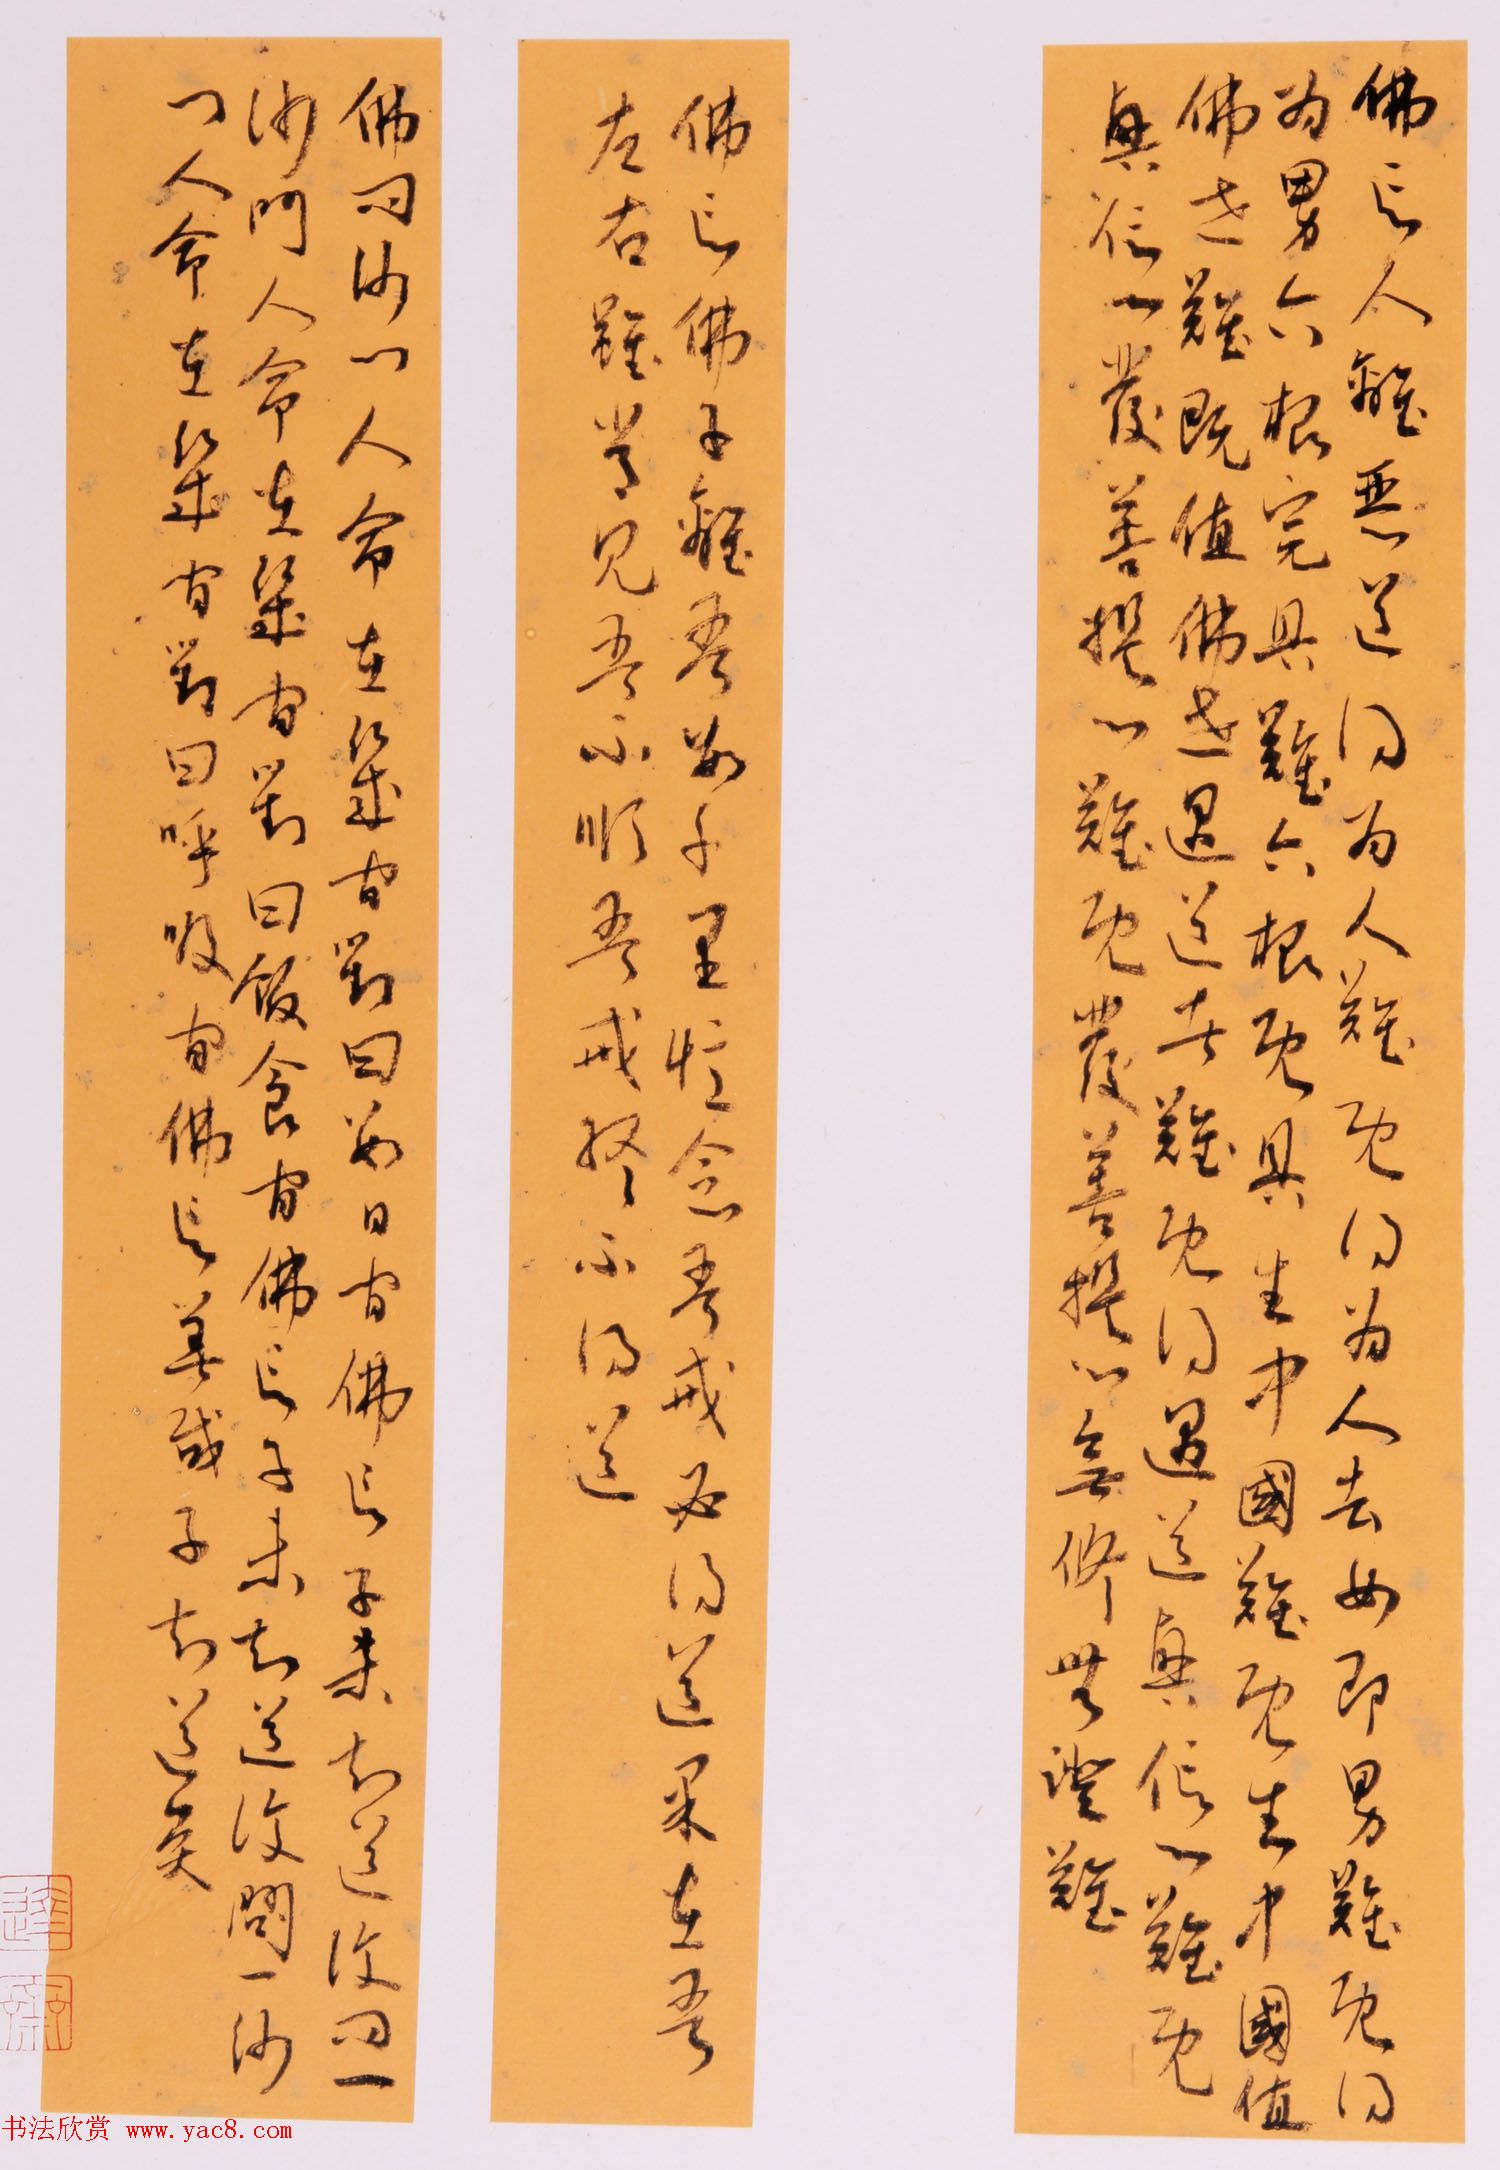 佛言人離惡道得為人難既得為人去女即男難既得
為男六根完具難六根既具生中國難既生中國值
佛世難既值佛世遇道者難既得遇道真信心難既
真信心發菩提心難既發菩提心無修無證難
佛言佛子離吾數千里憶念吾戒必得道果在吾
左右雖常見吾不順吾戒終不得道
佛問沙門人命在幾間對曰數日間佛言子未知道復問一
沙門人命在幾間對曰飯食間佛言子未知道復問一沙
門人命在幾間對曰呼吸間佛言善哉子知道矣
书法欣赏 www.yac8.com